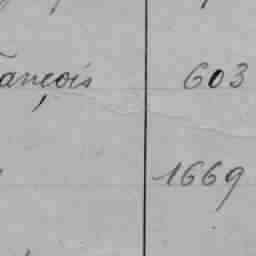 ançois 603
1669